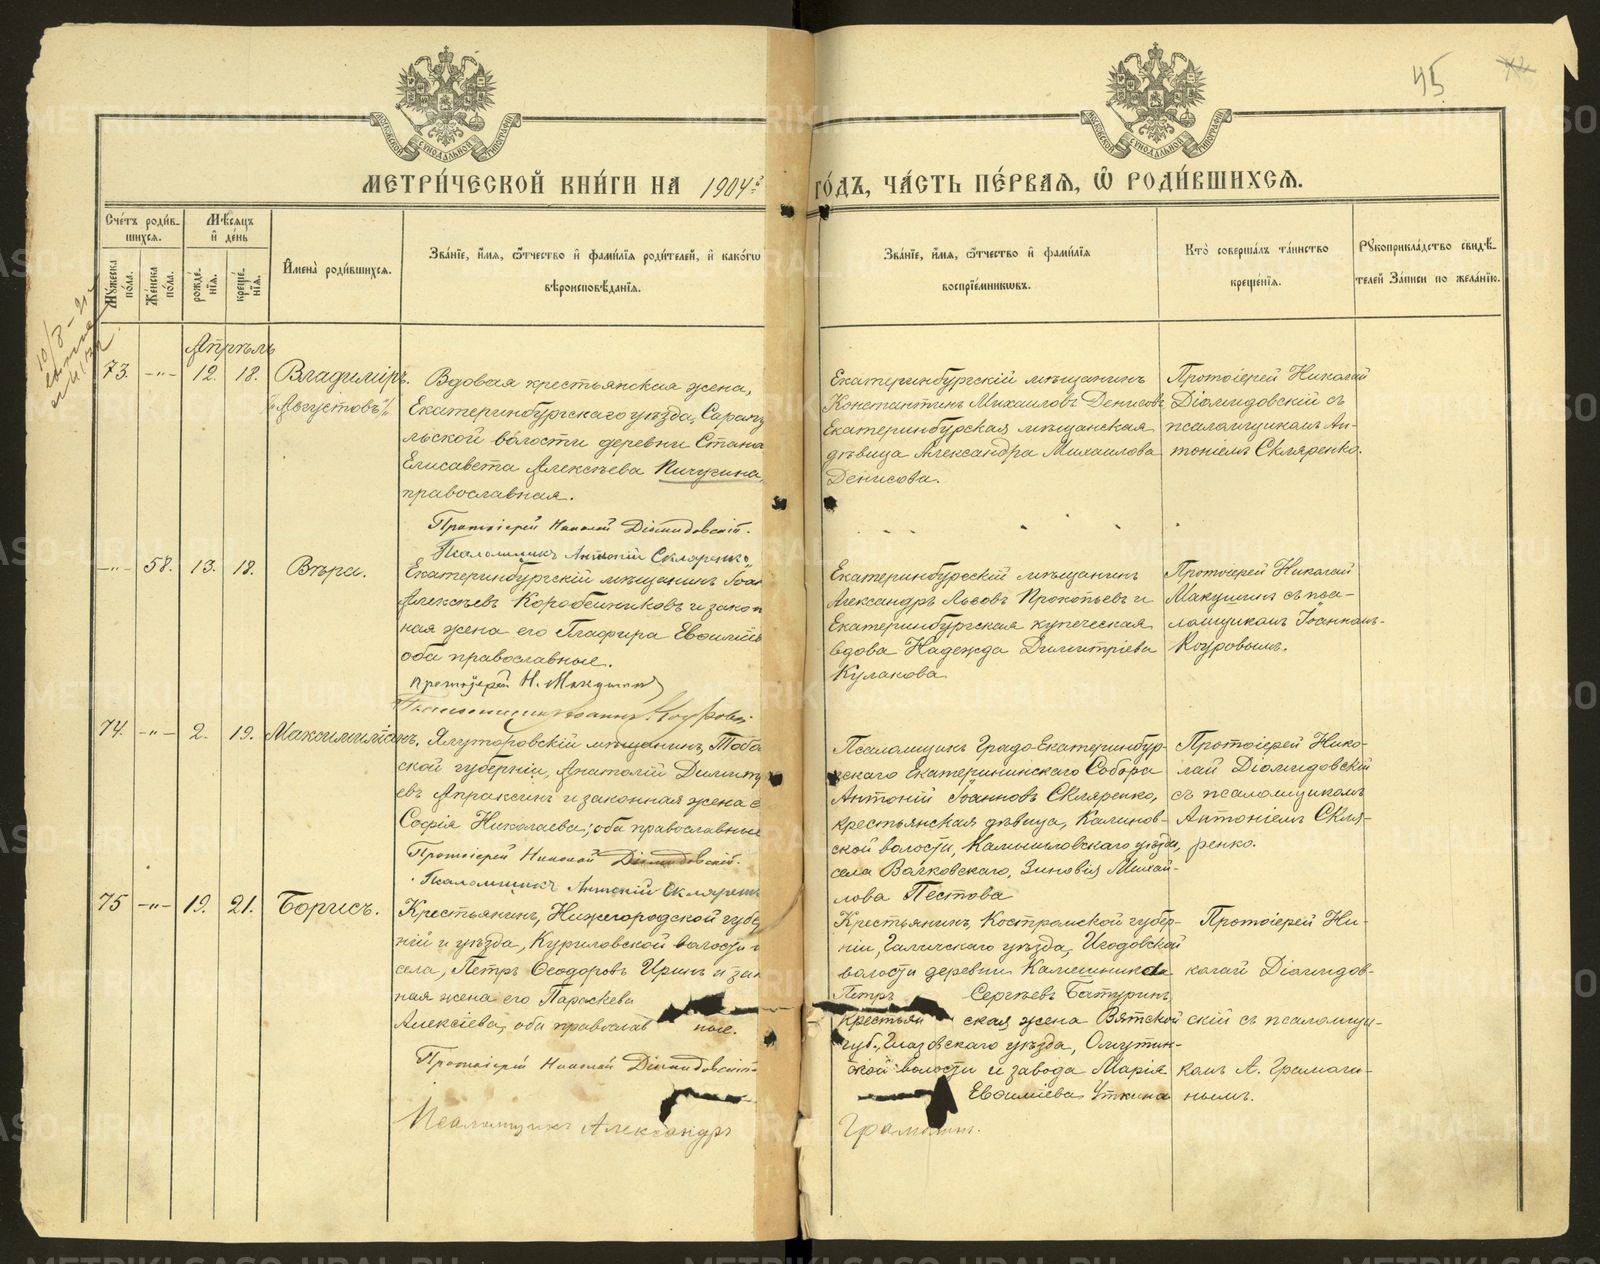 45
МЕТРИ́ЧЕСКОЙ КНИ́ГИ НА 1904й
ГО́ДЪ, ЧА́СТЬ ПЕ́РВАЯ, Ѿ РОДИ́ВШИХСЯ.
Сче́тъ роди́в-
шихся.
Мѣ́сяцъ
и҆ де́нь
Му́жеска по́ла.
Же́нска по́ла.
рожде́-
нїя.
креще́-
нїя.
И҆мена̀ роди́вшихся.
Зва́нїе, и҆́мя, ѻ҆́тчество и҆ фами́лїя роди́телей, и҆ како́гѡ
вѣроисповѣ́данїя.
Зва́нїе, и҆́мя, ѻ҆́тчество и҆ фами́лїя
воспрїе́мникѡвъ.
Кто̀ соверша́лъ та́инство
креще́нїя.
Рꙋкоприкла́дство свидѣ́-
телей За́писи по жела́нїю.
Апрѣль
73. -„- 12. 18. Владиміръ.
„Августовъ“
Вдовая крестьянская жена,
Екатеринбургскаго уѣзда, Сарапу
льской волости деревни Стана
Елисавета Алексѣева Пичугина,
православная.
Протоіерей Николай Діомидовскій.
Псаломщикъ Антоній Скляренко,
Екатеринбургскій мѣщанинъ
Константинъ Михаиловъ Денисовъ
Екатеринбургская мѣщанская
дѣвица Александра Михаилова
Денисова.
Протоіерей Николай
Діомидовскій съ
псаломщикомъ Ан-
тоніемъ Скляренко.
-„- 58. 13. 18. Вѣра.
Екатеринбургскій мѣщанинъ Іоан
Алексѣевъ Коробейниковъ и закон
ная жена его Глафира Евѳиміев
оба православные.
Протоіерей Н. Макушинъ
Псаломщикъ Іоаннъ Коуровъ
Екатеринбургскій мѣщанинъ
Александръ Львовъ Прокопьевъ и
Екатеринбургская купеческая
вдова Надежда Димитріева
Кулакова
Протоіерей Николай
Макушинъ съ пса-
ломщикомъ Іоанномъ
Коуровымъ.
74. -„- 2. 19. Максимиліанъ.
Ялуторовскій мѣщанинъ, Тобо
ской губерніи, Анатолій Димитр
евъ Апраксинъ и законная жена е
Софія Николаева; оба православные
Протоіерей Николай Діомидовскій.
Псаломщикъ Антоній Скляренк
Псаломщикъ Градо-Екатеринбур-
гскаго Екатерининскаго Собора
Антоній Іоанновъ Скляренко,
крестьянская дѣвица, Калинов-
ской волости, Камышловскаго уѣзда,
села Валковскаго, Зиновія Михай-
лова Пестова
Протоіерей Нико-
лай Діомидовскій
съ псаломщикомъ
Антоніемъ Скля-
ренко.
75 -„- 19. 21. Борисъ.
Крестьянинъ, Нижегородской губер
ній и уѣзда, Куриловской волости и
села, Петръ Ѳеодоровъ Иринъ и зак
ная жена его Параскева
Алексіева, оба православ ные.
Протоіерей Николай Діомидовскій
Псаломщикъ Александръ
Крестьянинъ, Костромской губер-
ніи, Галичскаго уѣзда, Игодовской
волости деревни Камешника
Петръ Сергѣевъ Батуринъ,
крестьян ская жена Вятской
губ., Глазовскаго уѣзда, Омутин-
ской волости и завода Марія
Евѳиміева Уткина
Грамогинъ.
Протоіерей Ни-
колай Діомидов-
скій съ псаломщи-
комъ А. Грамоги-
нымъ.